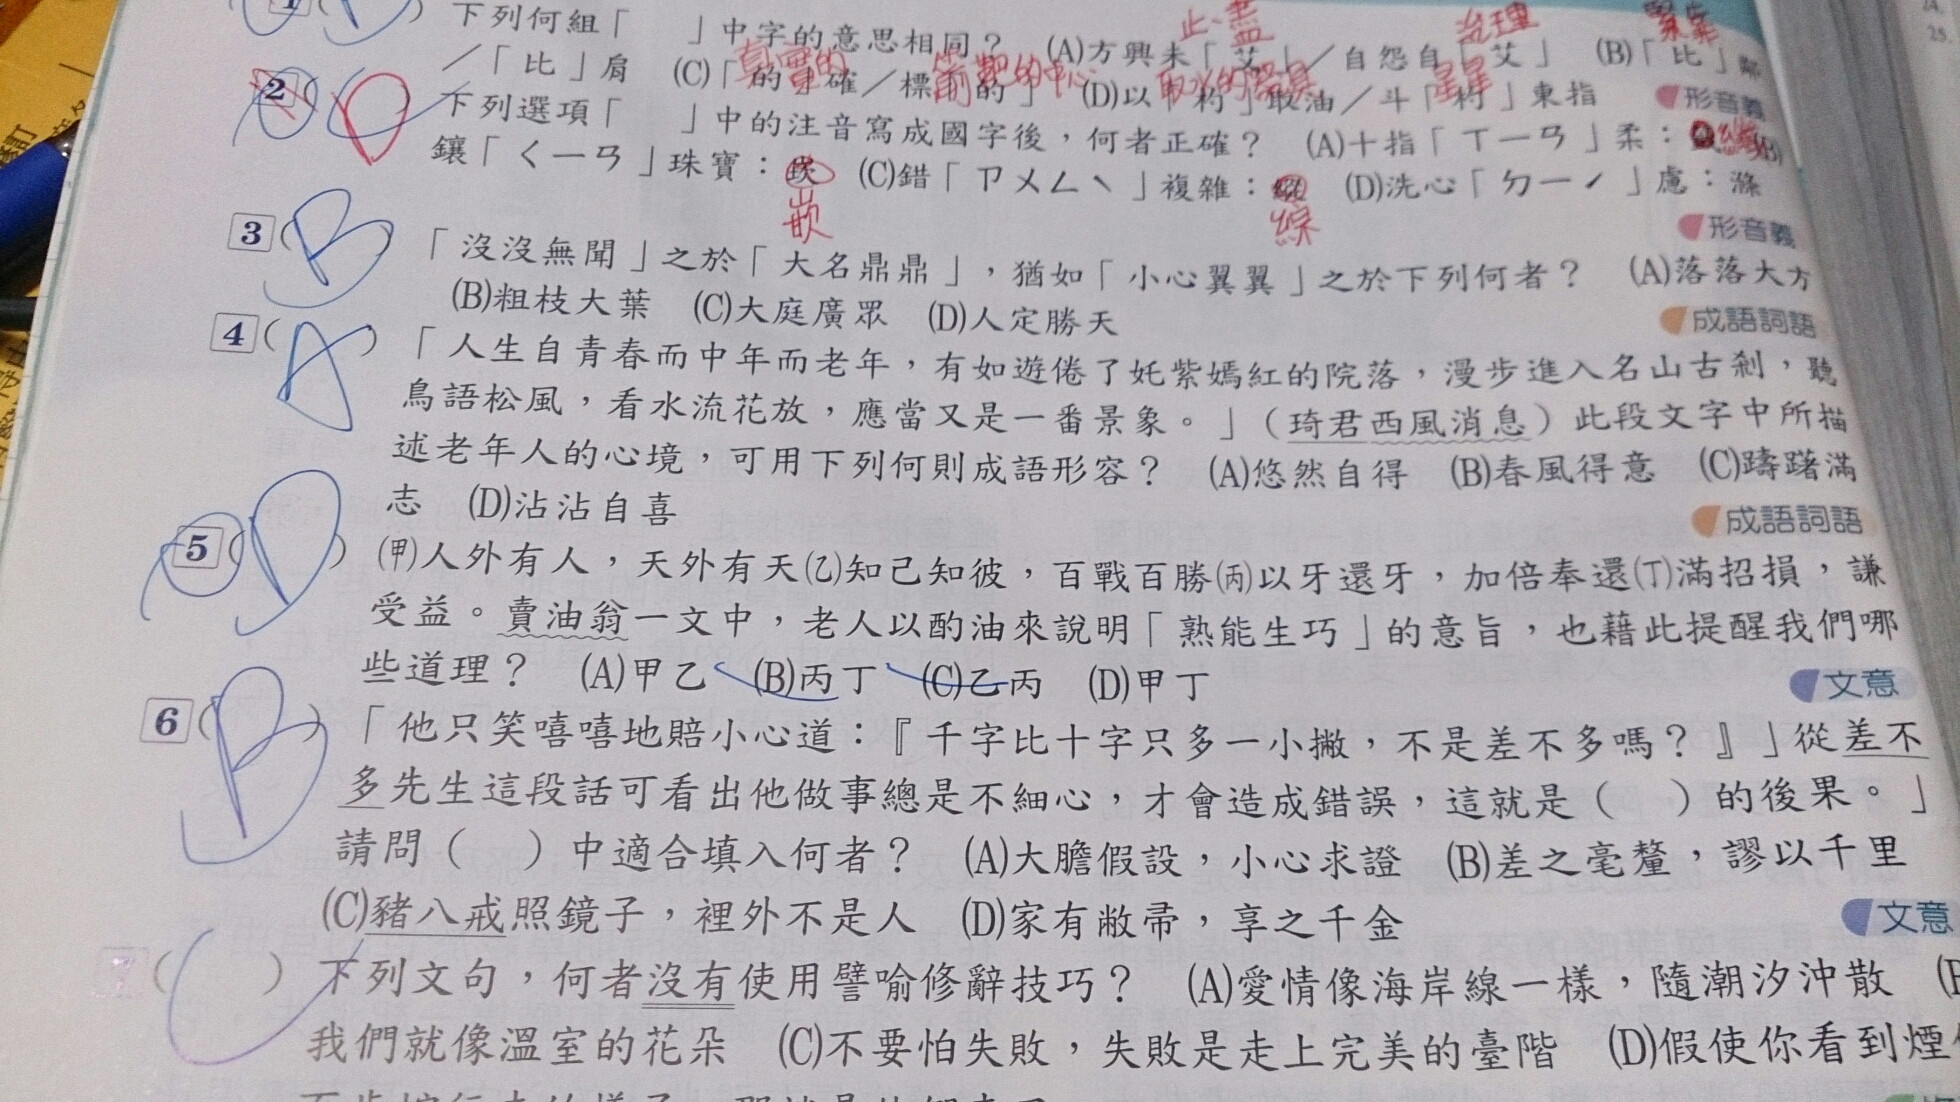 下列何組「　」中字的意思相同？　(A)方興未「艾」／自怨自「艾」　(B)「比」鄰
／「比」肩　(C)「的」確／標「的」　(D)以「杓」取油／斗「杓」東指
止、盡
治理
真實的
箭靶的中心
取水的器具
星星
形音義
2 ( D ) 下列選項「　」中的注音寫成國字後，何者正確？　(A)十指「ㄒㄧㄢ」柔：纖 (B)
鑲「ㄑㄧㄢ」珠寶：崁　(C)錯「ㄗㄨㄥˋ」複雜：　(D)洗心「ㄉㄧˊ」慮：滌
嵌
綜
形音義
3 ( B ) 「沒沒無聞」之於「大名鼎鼎」，猶如「小心翼翼」之於下列何者？　(A)落落大方
(B)粗枝大葉　(C)大庭廣眾　(D)人定勝天
成語詞語
4 ( A ) 「人生自青春而中年而老年，有如遊倦了奼紫嫣紅的院落，漫步進入名山古剎，聽
鳥語松風，看水流花放，應當又是一番景象。」（琦君西風消息）此段文字中所描
述老年人的心境，可用下列何則成語形容？　(A)悠然自得　(B)春風得意　(C)躊躇滿
志　(D)沾沾自喜
成語詞語
5 ( D ) (甲)人外有人，天外有天(乙)知己知彼，百戰百勝(丙)以牙還牙，加倍奉還(丁)滿招損，謙
受益。賣油翁一文中，老人以酌油來說明「熟能生巧」的意旨，也藉此提醒我們哪
些道理？　(A)甲乙　(B)丙丁　(C)乙丙　(D)甲丁
文意
6 ( B ) 「他只笑嘻嘻地賠小心道：『千字比十字只多一小撇，不是差不多嗎？』」從差不
多先生這段話可看出他做事總是不細心，才會造成錯誤，這就是（　）的後果。」
請問（　）中適合填入何者？　(A)大膽假設，小心求證　(B)差之毫釐，謬以千里
(C)豬八戒照鏡子，裡外不是人　(D)家有敝帚，享之千金
文意
7 ( C ) 下列文句，何者沒有使用譬喻修辭技巧？　(A)愛情像海岸線一樣，隨潮汐沖散
我們就像溫室的花朵　(C)不要怕失敗，失敗是走上完美的臺階　(D)假使你看到煙